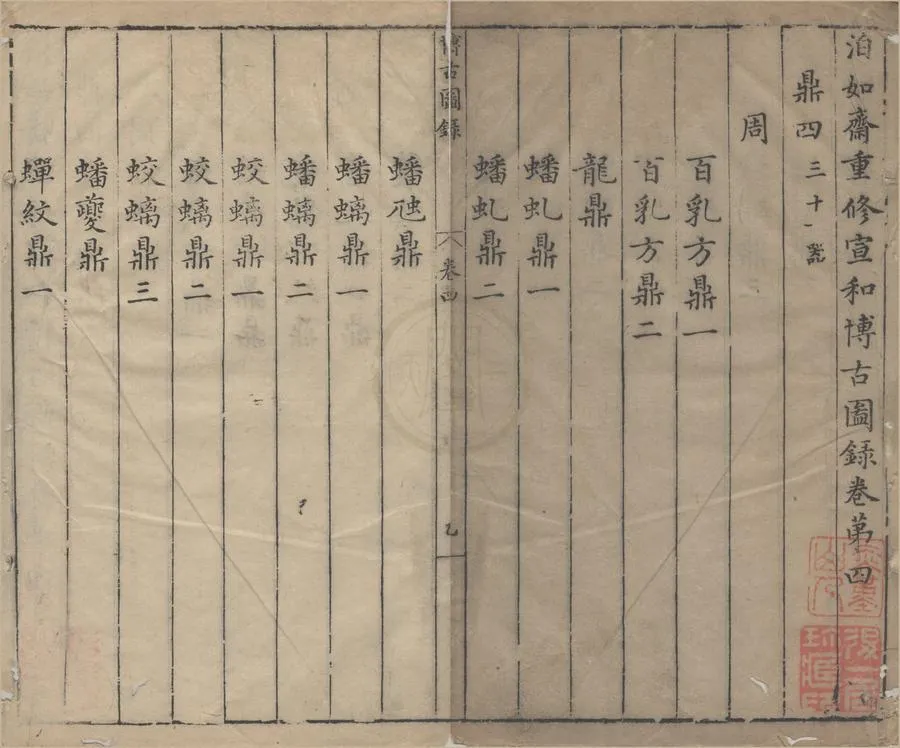 泊如齋重修宣和博古圖録卷第四
鼎四三十一器
周
百乳方鼎一
百乳方鼎二
龍鼎
蟠虬鼎一
蟠虬鼎二
博古圖録
卷四
乙
蟠虺鼎
蟠螭鼎一
蟠螭鼎二
蛟螭鼎一
蛟螭鼎二
蛟螭鼎三
蟠夔鼎
蟬紋鼎一